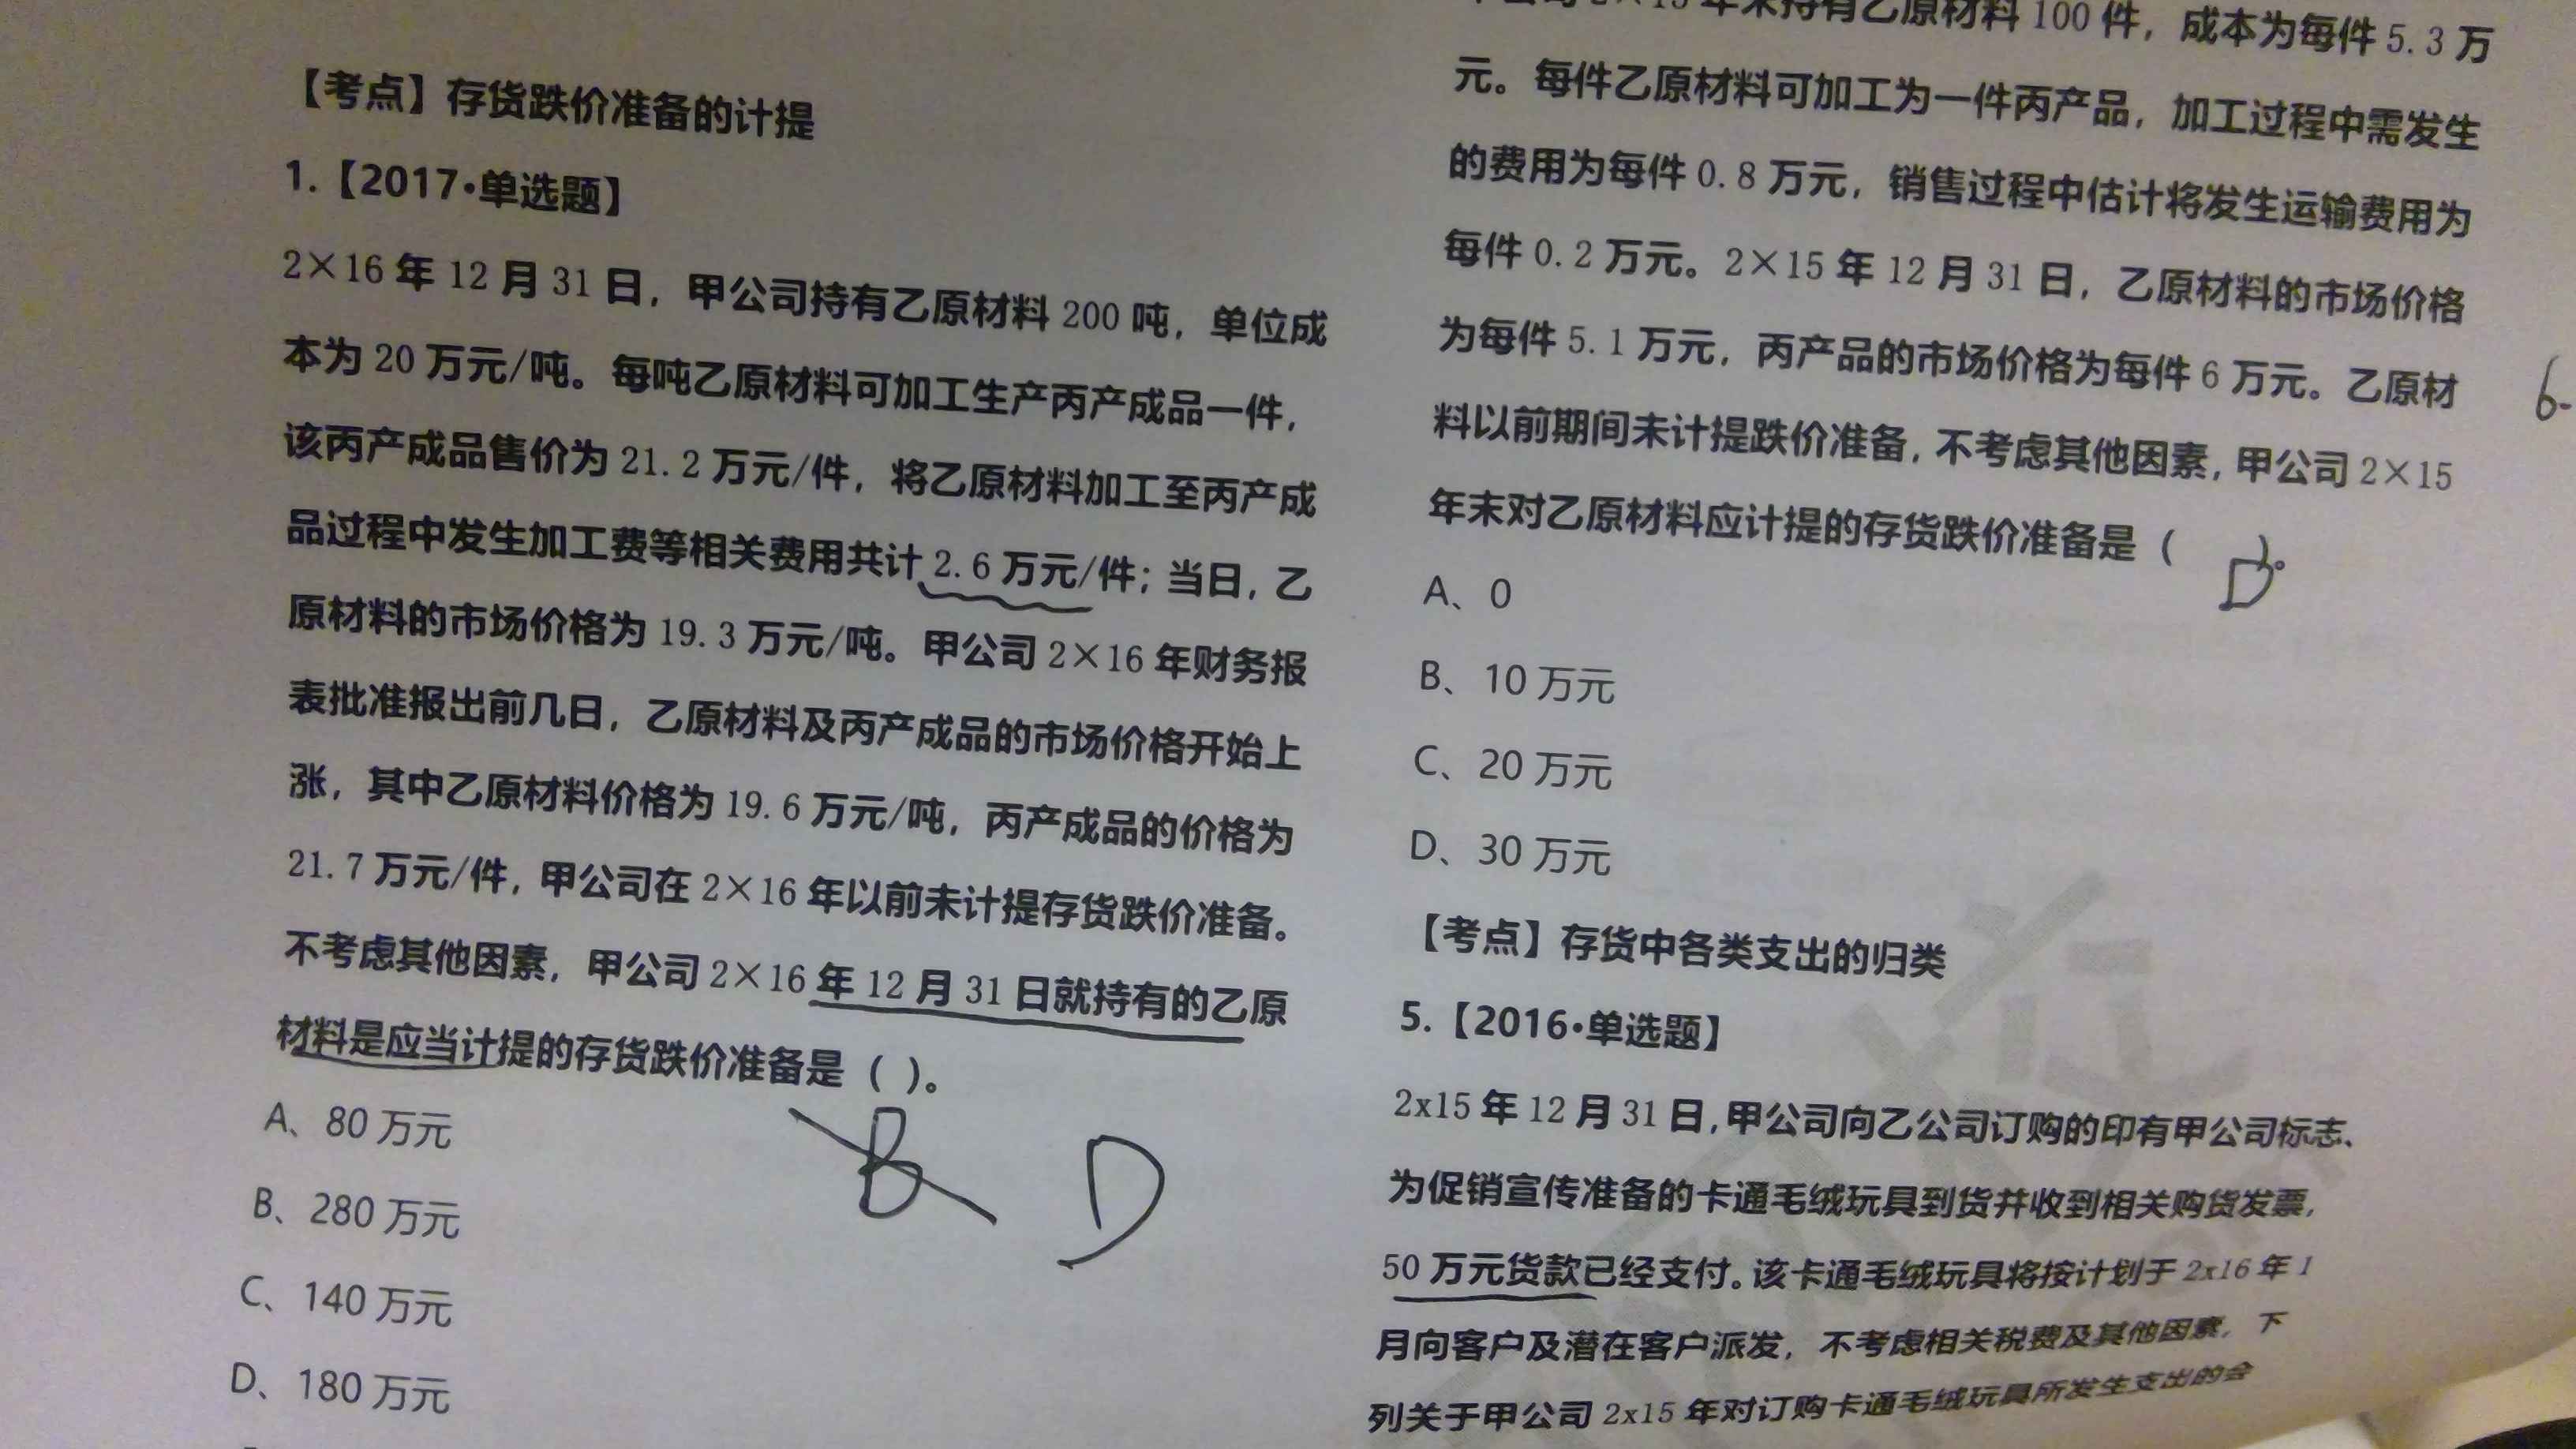 【考点】存货跌价准备的计提
1.【2017·单选题】
2×16年12月31日，甲公司持有乙原材料200吨，单位成
本为20万元/吨。每吨乙原材料可加工生产丙产成品一件，
该丙产成品售价为21.2万元/件，将乙原材料加工至丙产成
品过程中发生加工费等相关费用共计2.6万元/件；当日，乙
原材料的市场价格为19.3万元/吨。甲公司2×16年财务报
表批准报出前几日，乙原材料及丙产成品的市场价格开始上
涨，其中乙原材料价格为19.6万元/吨，丙产成品的价格为
21.7万元/件，甲公司在2×16年以前未计提存货跌价准备。
不考虑其他因素，甲公司2×16年12月31日就持有的乙原
材料是应当计提的存货跌价准备是（ ）。
B D
A、80万元
B、280万元
C、140万元
D、180万元
年末持有乙原材料100件，成本为每件5.3万
元。每件乙原材料可加工为一件丙产品，加工过程中需发生
的费用为每件0.8万元，销售过程中估计将发生运输费用为
每件0.2万元。2×15年12月31日，乙原材料的市场价格
为每件5.1万元，丙产品的市场价格为每件6万元。乙原材
料以前期间未计提跌价准备，不考虑其他因素，甲公司2×15
年末对乙原材料应计提的存货跌价准备是（ D ）。
A、0
B、10万元
C、20万元
D、30万元
【考点】存货中各类支出的归类
5.【2016·单选题】
2x15年12月31日，甲公司向乙公司订购的印有甲公司标志、
为促销宣传准备的卡通毛绒玩具到货并收到相关购货发票，
50万元货款已经支付。该卡通毛绒玩具将按计划于2x16年1
月向客户及潜在客户派发，不考虑相关税费及其他因素，下
列关于甲公司2x15年对订购卡通毛绒玩具所发生支出的会
6.